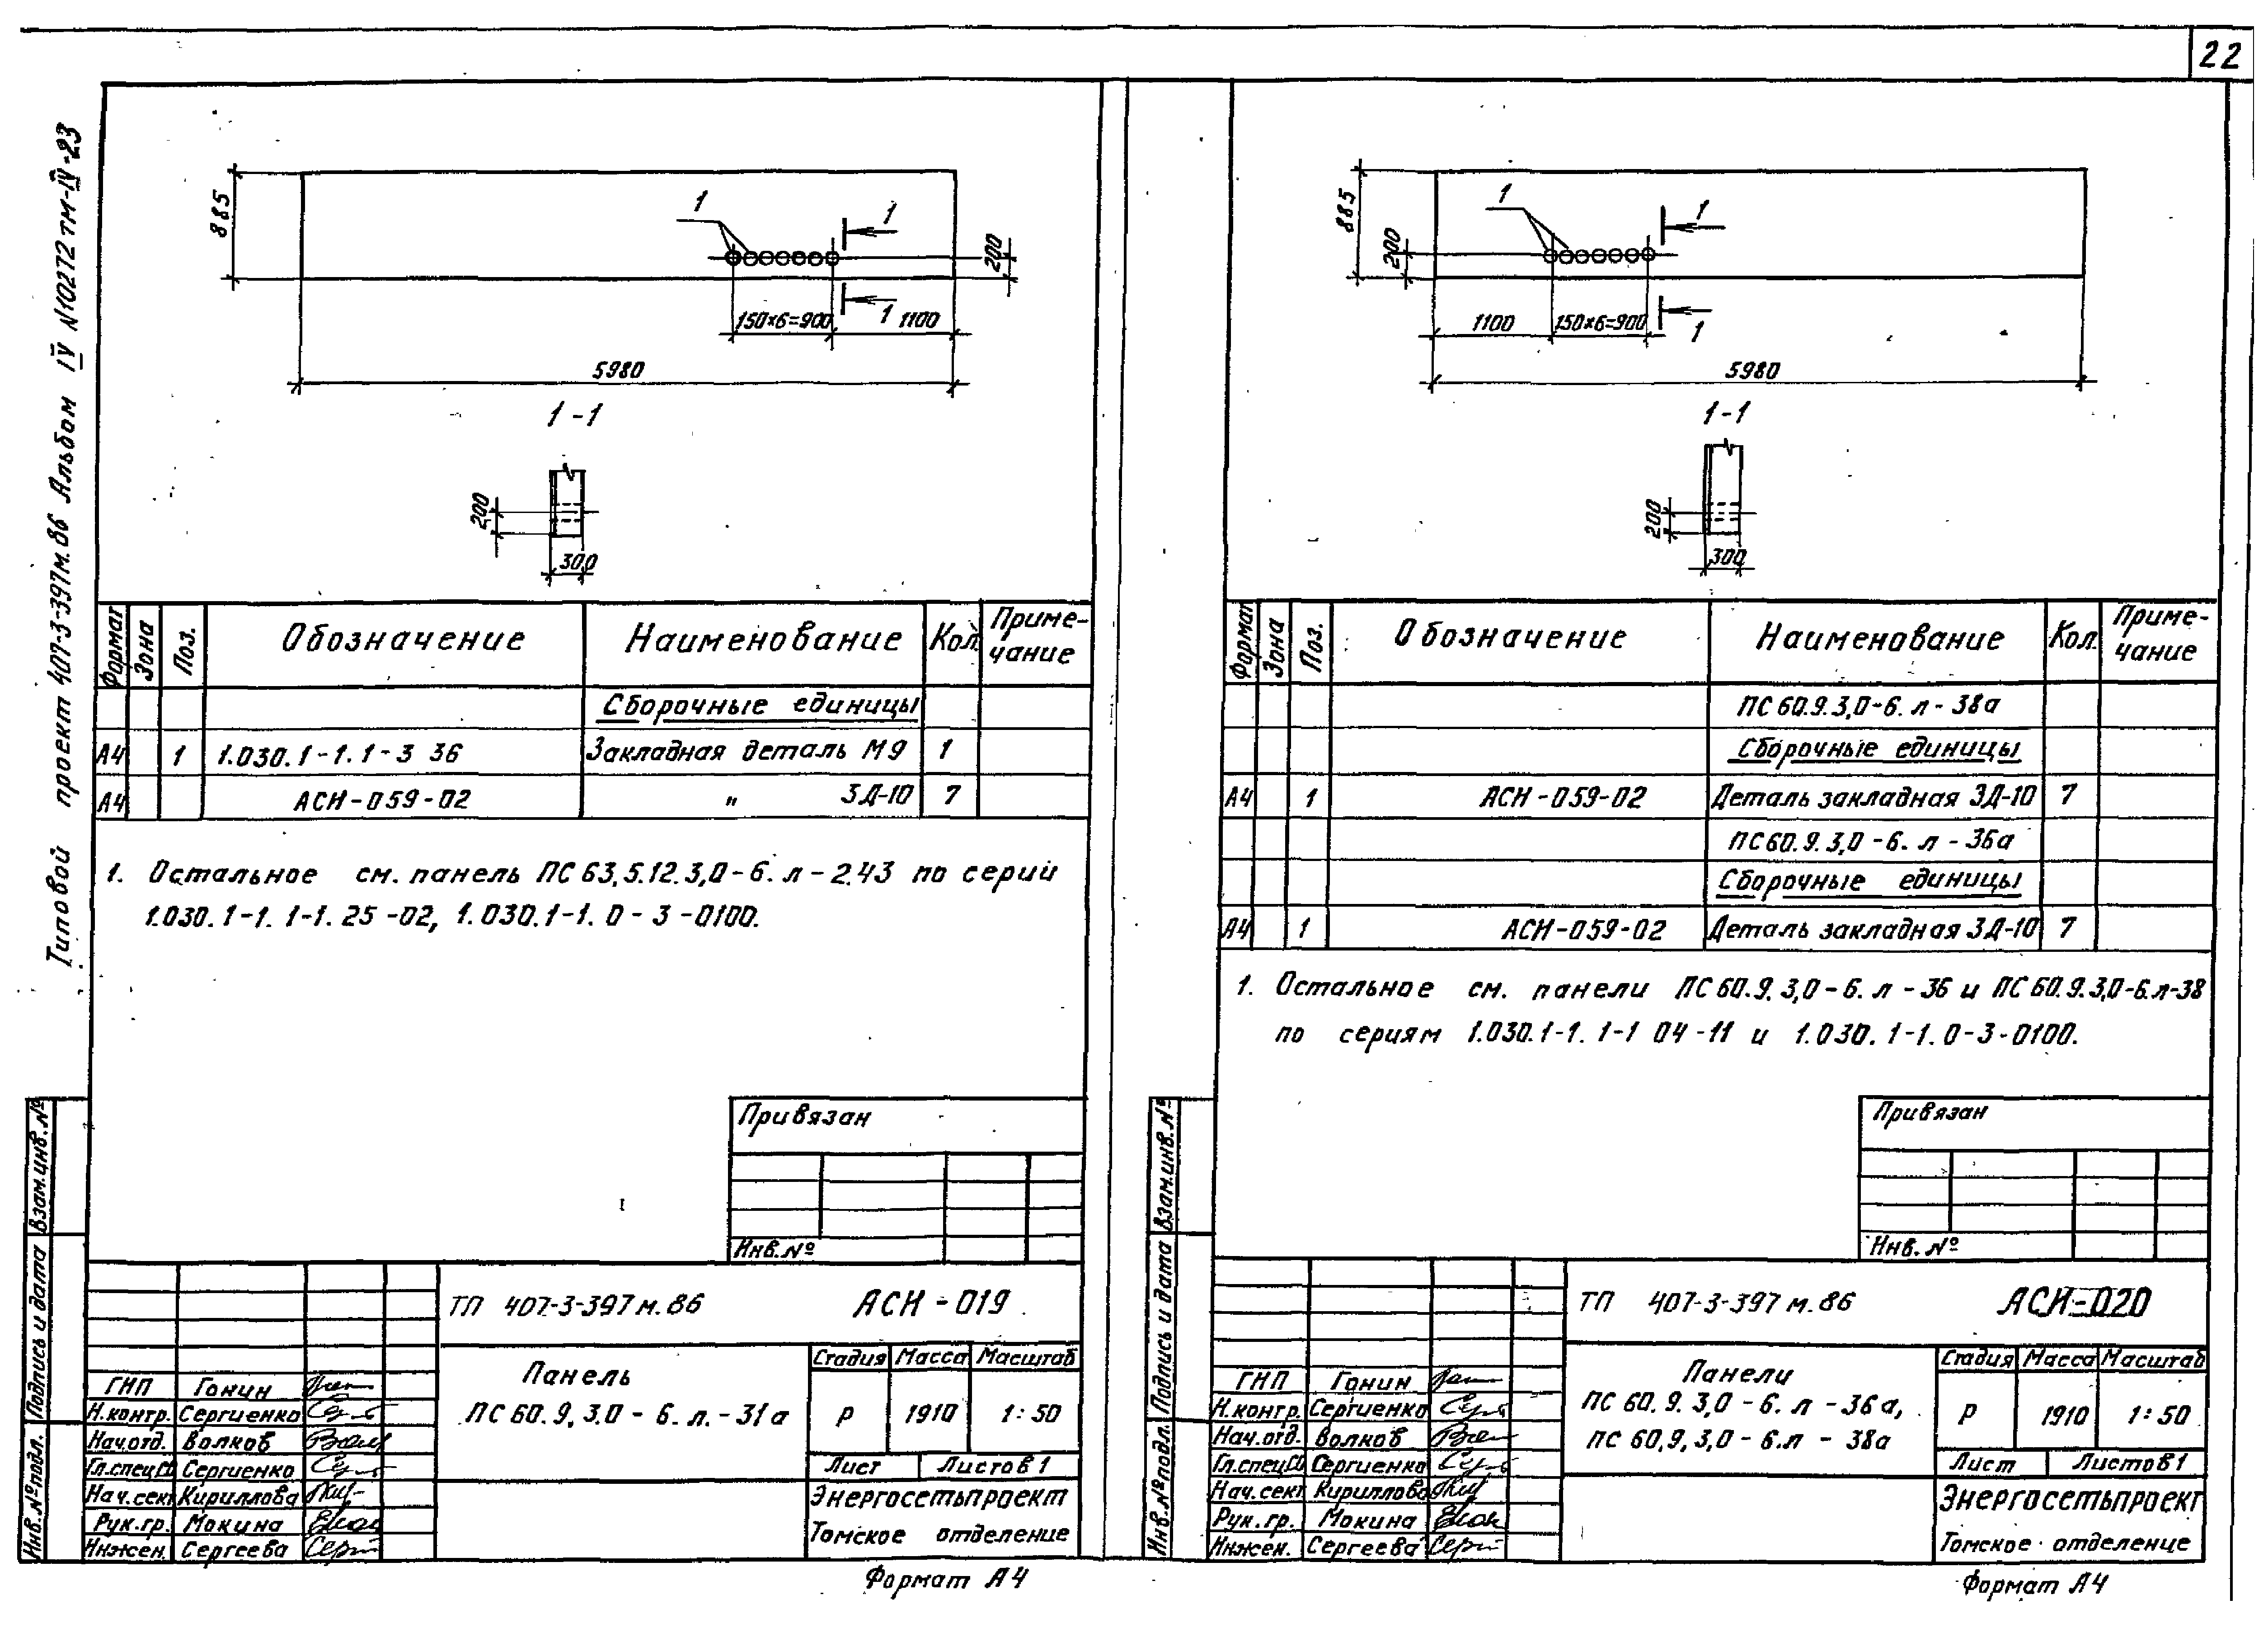 22
Типовой проект 407-3-397м.86 Альбом IV N10272тм-IV-23
885
1
1
200
150×6=900
1
1100
5980
1-1
200
300
Формат
Зона
Поз.
Обозначение
Наименование
Кол.
Приме-
чание
Сборочные единицы
А4 1 1.030.1-1.1-3 36 Закладная деталь М9 1
А4 АСИ-059-02 " ЗД-10 7
1. Остальное см. панель ПС 63,5.12.3,0-6.л-2.43 по серии
1.030.1-1.1-1.25-02, 1.030.1-1.0-3-0100.
Привязан
Инв.№
Взам.инв.№
Подпись и дата
Инв.№подл.
ТП 407-3-397м.86 АСИ-019
Панель
ПС 60.9,3.0-6.л.-31а
Стадия Масса Масштаб
Р 1910 1:50
Лист Листов 1
Энергосетьпроект
Томское отделение
ГИП Гонин
Н.контр. Сергиенко
Нач.отд. Волков
Гл.спецСО Сергиенко
Нач.сект Кириллова
Рук.гр. Мокина
Инжен. Сергеева
Формат А4
885
200
1
1
1100
150×6=900
1
5980
1-1
200
300
Формат
Зона
Поз.
Обозначение
Наименование
Кол.
Приме-
чание
ПС 60.9.3,0-6.л-38а
Сборочные единицы
А4 1 АСИ-059-02 Деталь закладная ЗД-10 7
ПС 60.9.3,0-6.л-36а
Сборочные единицы
А4 1 АСИ-059-02 Деталь закладная ЗД-10 7
1. Остальное см. панели ПС 60.9.3,0-6.л-36 и ПС 60.9.3,0-6.л-38
по сериям 1.030.1-1.1-1 04-11 и 1.030.1-1.0-3-0100.
Привязан
Инв.№
Взам.инв.№
Подпись и дата
Инв.№подл.
ТП 407-3-397м.86 АСИ-020
Панели
ПС 60.9.3,0-6.л-36а,
ПС 60,9,3,0-6.л-38а
Стадия Масса Масштаб
Р 1910 1:50
Лист Листов 1
Энергосетьпроект
Томское отделение
ГИП Гонин
Н.контр. Сергиенко
Нач.отд. Волков
Гл.спецСО Сергиенко
Нач.сект Кириллова
Рук.гр. Мокина
Инжен. Сергеева
Формат А4